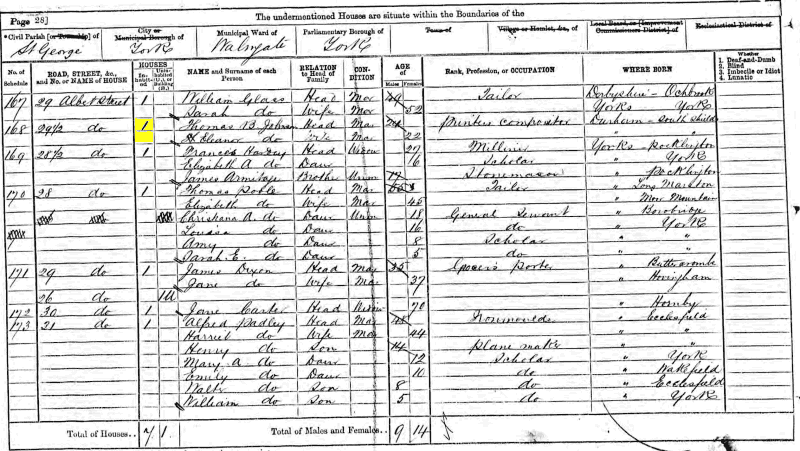 The undermentioned Houses are situate within the Boundaries of the
Page 28]
Civil Parish [or Township] of
City or Municipal Borough of
Municipal Ward of
Parliamentary Borough of
Town of
Village or Hamlet, &c., of
Local Board, or [Improvement Commissioners District] of
Ecclesiastical District of
St George York Walmgate York
No. of Schedule
ROAD, STREET, &c., and No. or NAME of HOUSE
HOUSES
Inhabited
Uninhabited (U.), or Building (B.)
NAME and Surname of each Person
RELATION to Head of Family
CONDITION
AGE of
Males Females
Rank, Profession, or OCCUPATION
WHERE BORN
Whether
1. Deaf-and-Dumb
2. Blind
3. Imbecile or Idiot
4. Lunatic
167 29 Albert Street 1 William Glass Head Mar Tailor Derbyshire - Ochbrook
Sarah do Wife Mar 52 Yorks York
168 29½ do 1 Thomas B Head Mar Printer compositor Durham - South Shields
H Eleanor do Wife Mar 22 " "
169 28½ do 1 Frances Head Widow 27 Milliner Yorks Pocklington
Elizabeth A. do Daur 16 Scholar " York
James Armitage Brother Unm 17 Stonemason " Pocklington
170 28 do 1 Thomas Head Mar Tailor " Long Marston
Elizabeth do Wife Mar 45 " Moor Mountain
do Christiana A. do Daur Unm 18 General Servant " Borobridge
Louisa do Daur 16 do " York
Amy do Daur 8 Scholar " "
Sarah E. do Daur 5 do " "
171 29 do 1 James Dixon Head Mar 35 Grocer's Porter " Buttercrambe
Jane do Wife Mar 37 " Hovingham
26 do 1U
172 30 do 1 Jane Carter Head Widow 70 " Hornby
173 31 do 1 Alfred Padley Head Mar Ironmoulder " Ecclesfield
Harriet do Wife Mar 44 " "
Henry do Son 14 plane maker " York
Mary A. do Daur 12 Scholar " York
Emily do Daur 10 do " Wakefield
Walter do Son 8 do " Ecclesfield
William do Son 5 do " York
Total of Houses... 7 1 Total of Males and Females... 9 14